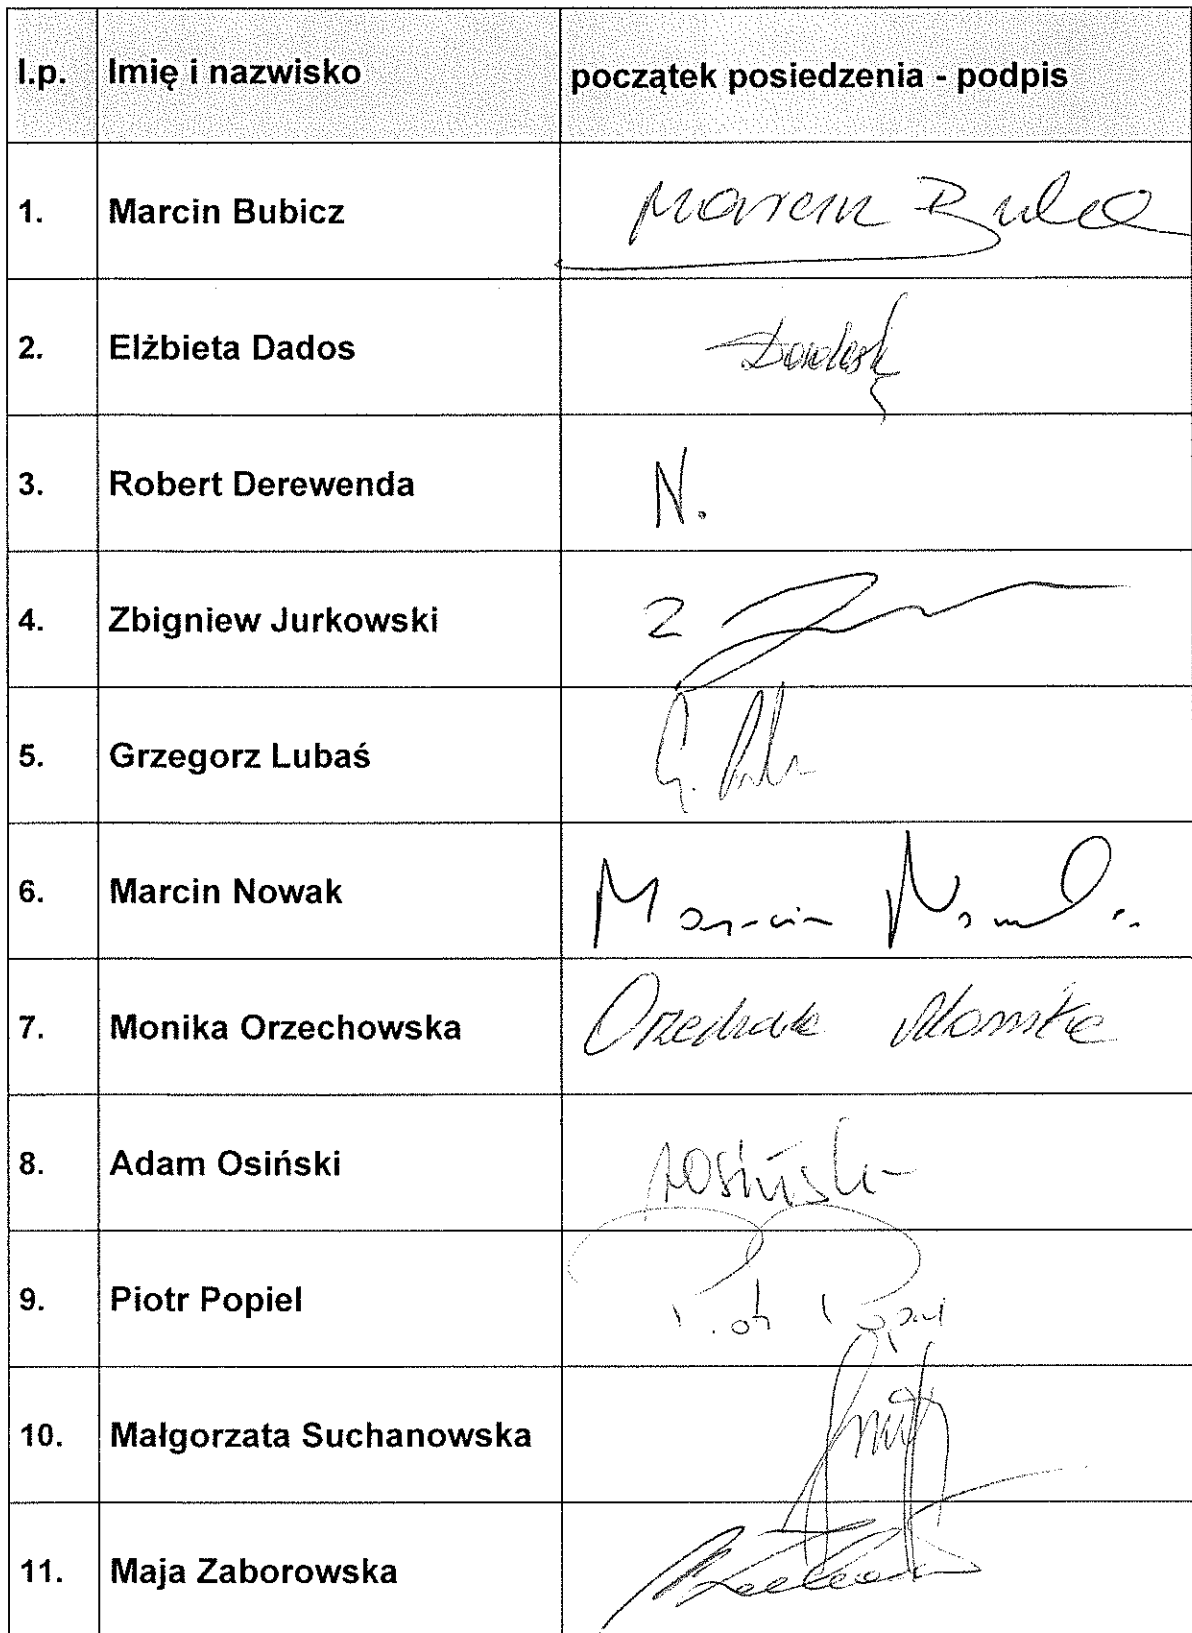 l.p. Imię i nazwisko początek posiedzenia - podpis
1. Marcin Bubicz Marcin
2. Elżbieta Dados
3. Robert Derewenda N.
4. Zbigniew Jurkowski Z
5. Grzegorz Lubaś G.
6. Marcin Nowak Marcin Nowak
7. Monika Orzechowska Monika
8. Adam Osiński AOsiński
9. Piotr Popiel
10. Małgorzata Suchanowska
11. Maja Zaborowska